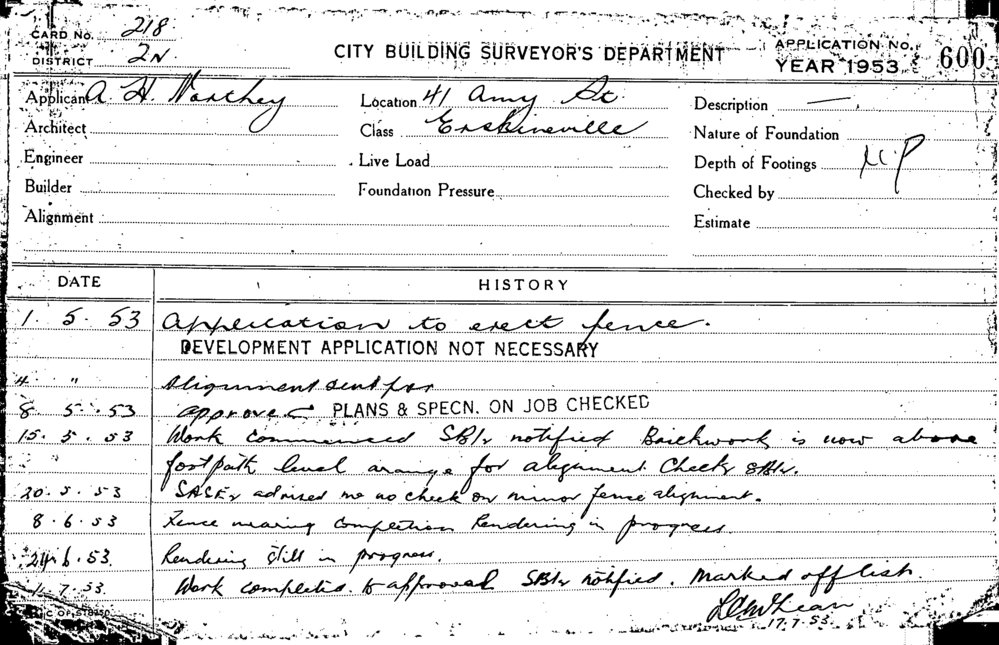 CARD No. 218
DISTRICT 2N.
CITY BUILDING SURVEYOR'S DEPARTMENT
APPLICATION No. 600
YEAR 1953
Applicant A. H. Northey
Location 41 Amy St
Description —
Architect
Class Erskineville
Nature of Foundation
Engineer
Live Load
Depth of Footings
Builder
Foundation Pressure
Checked by
Alignment
Estimate
DATE HISTORY
1. 5. 53 Application to erect fence.
DEVELOPMENT APPLICATION NOT NECESSARY
4. " Alignment sent for
8 5. 53 approved PLANS & SPECN. ON JOB CHECKED
15. 5. 53 Work commenced notified Brickwork is now above
footpath level arange for alignment Check
20. 5. 53 advised me no check on minor fence alignment.
8. 6. 53 Fence nearing Completion Rendering in progress
24. 6. 53. Rendering still in progress.
7. 53. Work completed to approval notified. Marked off list.
17. 7. 53.